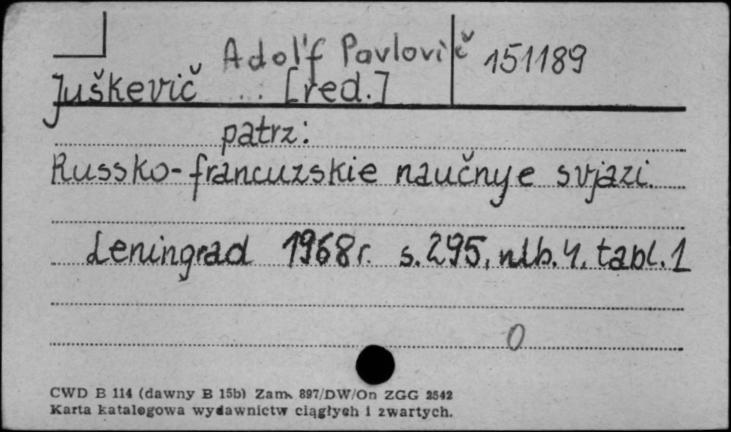 Adol'f Pavlovič 151189
Juškevič [red.]
patrz:
Russko-francuzskie naučnye svjazi.
Leningrad 1968r. s.295, nlb.4, tabl.1
0
CWD B 114 (dawny B 15b) Zam. 897/DW/On ZGG 2542
Karta katalogowa wydawnictw ciągłych i zwartych.